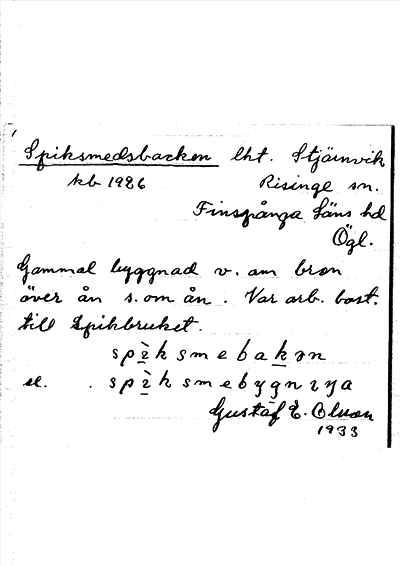 Spiksmedsbacken lht. Stjärnvik
kb 1926 Risinge sn.
Finspånga Läns hd
Ögl.
Gammal byggnad v. om bron
över ån s. om ån. Var arb. bost.
till Spikbruket.
spì̱k smebak̲ən
el. spì̱k smebyg̲nıŋa
Gustaf E. Olsson
1933